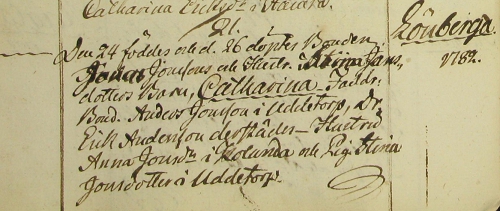 Catharina i
21.
Den 24 föddes och d. 26 döptes Bonden
Jonas Jonssons och Hustr. Stina Jans
dotters Barn, Catharina Faddr.
Bond. Anders Jonsson i Uddetorp, Dr.
Erik Andersson Hustru
Anna Jonsdr. i och Pig. Stina
Jonsdotter i Uddetorp.
Lönberga
1782.